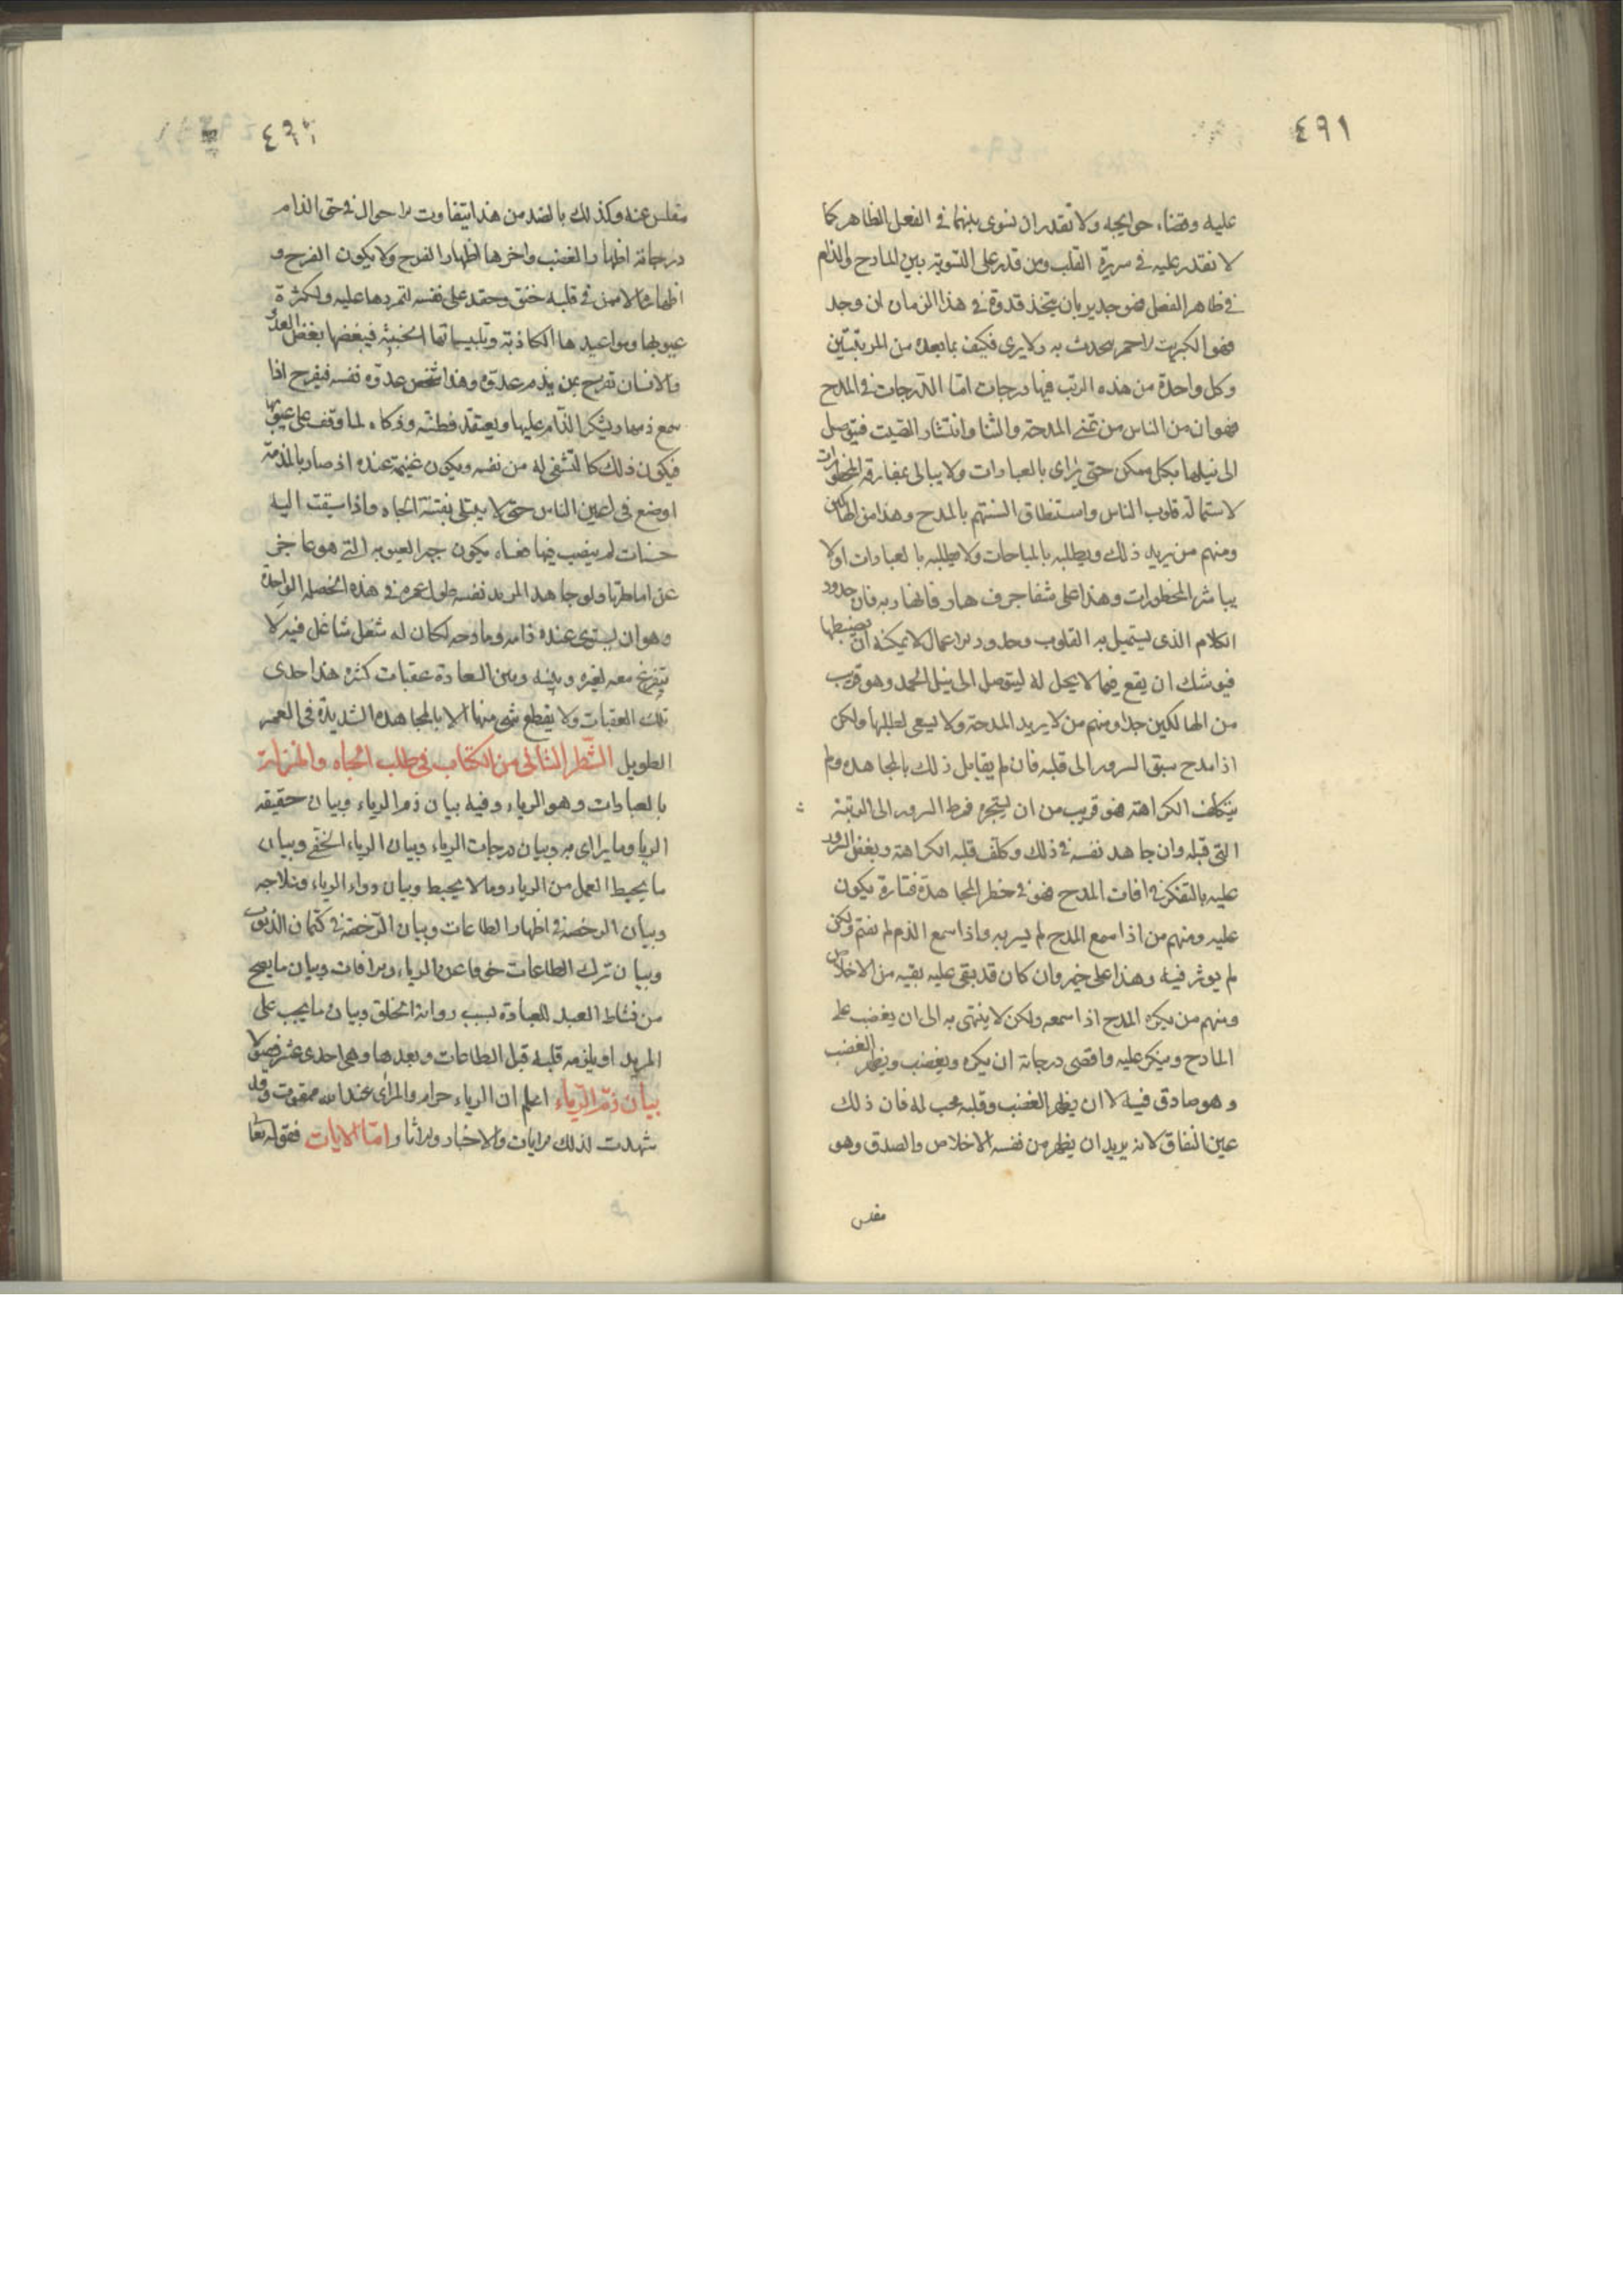 ٤٩١
عليه وقضاء حوايجه ولا تقدر ان نسوى بينهما في الفعل الظاهر كما
لا نقدر عليه في سريرة القلب ومن قدر على التسوية بين المادح والذام
في ظاهر الفعل فهو جدير بان يتخذ قدوة في هذا الزمان ان وجد
فهو الكبريت الاحمر يتحدث به ولا يرى فكيف بما بعده من المرتبتين
وكل واحدة من هذه الرتب فيها درجات اما الدرجات في المدح
فهو ان من الناس من تمنى المدحة والثنا وانتشار الصيت فيتوصل
الى نيلها بكل ممكن حتى يرائ بالعبادات ولا يبالى بمفارقة المحظورات
لاستمالة قلوب الناس واستنطاق السنتهم بالمدح وهذا من الهالكين
ومنهم من يريد ذلك ويطلبه بالمباحات ولا يطلبه بالعبادات او لا
يباشر المحظورات وهذا على شفا جرف هار فانهار به فان حدود
الكلام الذى يستميل به القلوب وحدود الاعمال لا يمكنه ان يضبطها
فيوشك ان يقع فيما لا يحل له ليتوصل الى نيل الحمد وهو قريب
من الهالكين جدا ومنهم من لا يريد المدحة ولا يسعى لطلبها ولكن
اذا مدح سبق السرور الى قلبه فان لم يقابل ذلك بالمجاهدة ولم
يتكلف الكراهة فهو قريب من ان يستجره فرط السرور الى الرتبة
التي قبله وان جاهد نفسه في ذلك وكلف قلبه الكراهة وبغض السرور
عليه بالتفكر في افات المدح فهو في خطر المجاهدة فتارة يكون
عليه ومنهم من اذا سمع المدح لم يسر به واذا سمع الذم لم يغتم ولكن
لم يوثر فيه وهذا على خير وان كان قد بقى عليه بقيه من الاخلاص
ومنهم من يكره المدح اذا سمعه ولكن لا ينتهى به الى ان يغضب على
المادح وينكر عليه واقصى درجاته ان يكره ويغضب ويظهر الغضب
وهو صادق فيه لا ان يظهر الغضب وقلبه محب له فان ذلك
عين النفاق لانه يريد ان يظهر من نفسه الاخلاص والصدق وهو
مفلس
مفلس عنه وكذلك بالضد من هذا يتفاوت الاحوال في حق الذام
درجاته اظهار الغضب واخرها اظهار الفرح ولا يكون الفرح و
اظهاره الا ممن في قلبه حنق وحقد على نفسه لتمردها عليه ولكثرة
عيوبها ومواعيدها الكاذبة وتلبيساتها الخبيثة فيبغضها بغض العدو
والانسان تفرح بمن يذم عدوه وهذا شخص عدوه نفسه فيفرح اذا
سمع ذمها ويشكر الذام عليها ويعتقد فطنته وذكاه لما وقف على عيوبها
فيكون ذلك كالتشفى له من نفسه ويكون غنيمة عنده اذ صار بالمذمة
اوضع في اعين الناس حتى لا يبتلى بفتنة الجاه واذا سيقت اليه
حسنات لم ينصب فيها فعساه يكون جبر العيوبه التي هو عاجز
عن اماطتها ولو جاهد المريد نفسه طول عمره في هذه الخصلة الواحدة
وهو ان يستوى عنده ذامه ومادحه لكان له شغل شاغل فيه لا
يتفرغ معه لغيره وبينه وبين السعادة عقبات كثيره هذا احدى
تلك العقبات ولا يقطع شى منها الا بالمجاهدة الشديدة في العمر
الطويل الشطر الثانى من الكتاب في طلب الجاه والمنزلة
بالعبادات وهو الرياء وفيه بيان ذم الرياء وبيان حقيقة
الريا وما يراى به وبيان درجات الرياء وبيان الرياء الخفى وبيان
ما يحبط العمل من الرياء وما لا يحبط وبيان دواء الرياء وعلاجه
وبيان الرخصة في اظهار الطاعات وبيان الرخصة في كتمان الذنوب
وبيان ترك الطاعات خوفا عن الرياء والافات وبيان ما يصح
من نشاط العبد للعبادة بسبب رواية الخلق وبيان ما يجب على
المريد ان يلزمه قلبه قبل الطاعات وبعدها وهي احدى عشر فصولا
بيان ذم الرياء اعلم ان الرياء حرام والمرائ عند الله ممقوت وقد
شهدت لذلك الايات والاخبار والاثار واما الايات فقوله تعا